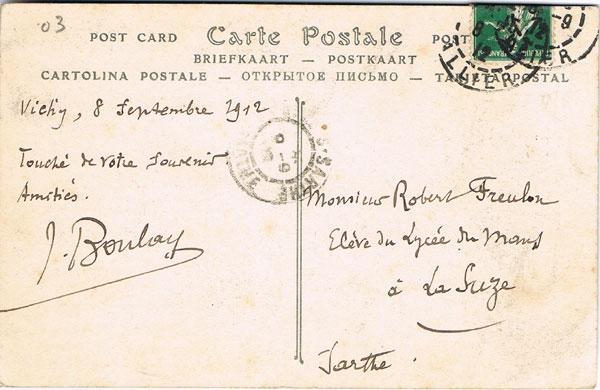 03
POST CARD Carte Postale POST
BRIEFKAART — POSTKAART
CARTOLINA POSTALE — ОТКРЫТОЕ ПИСЬМО — TARJETA POSTAL
ALLIER
Vichy, 8 Septembre 1912
Touché de votre souvenir
Amitiés.
J. Boulay
SARTHE
Monsieur Robert Freulon
Elève du Lycée du Mans
à La Suze
Sarthe.